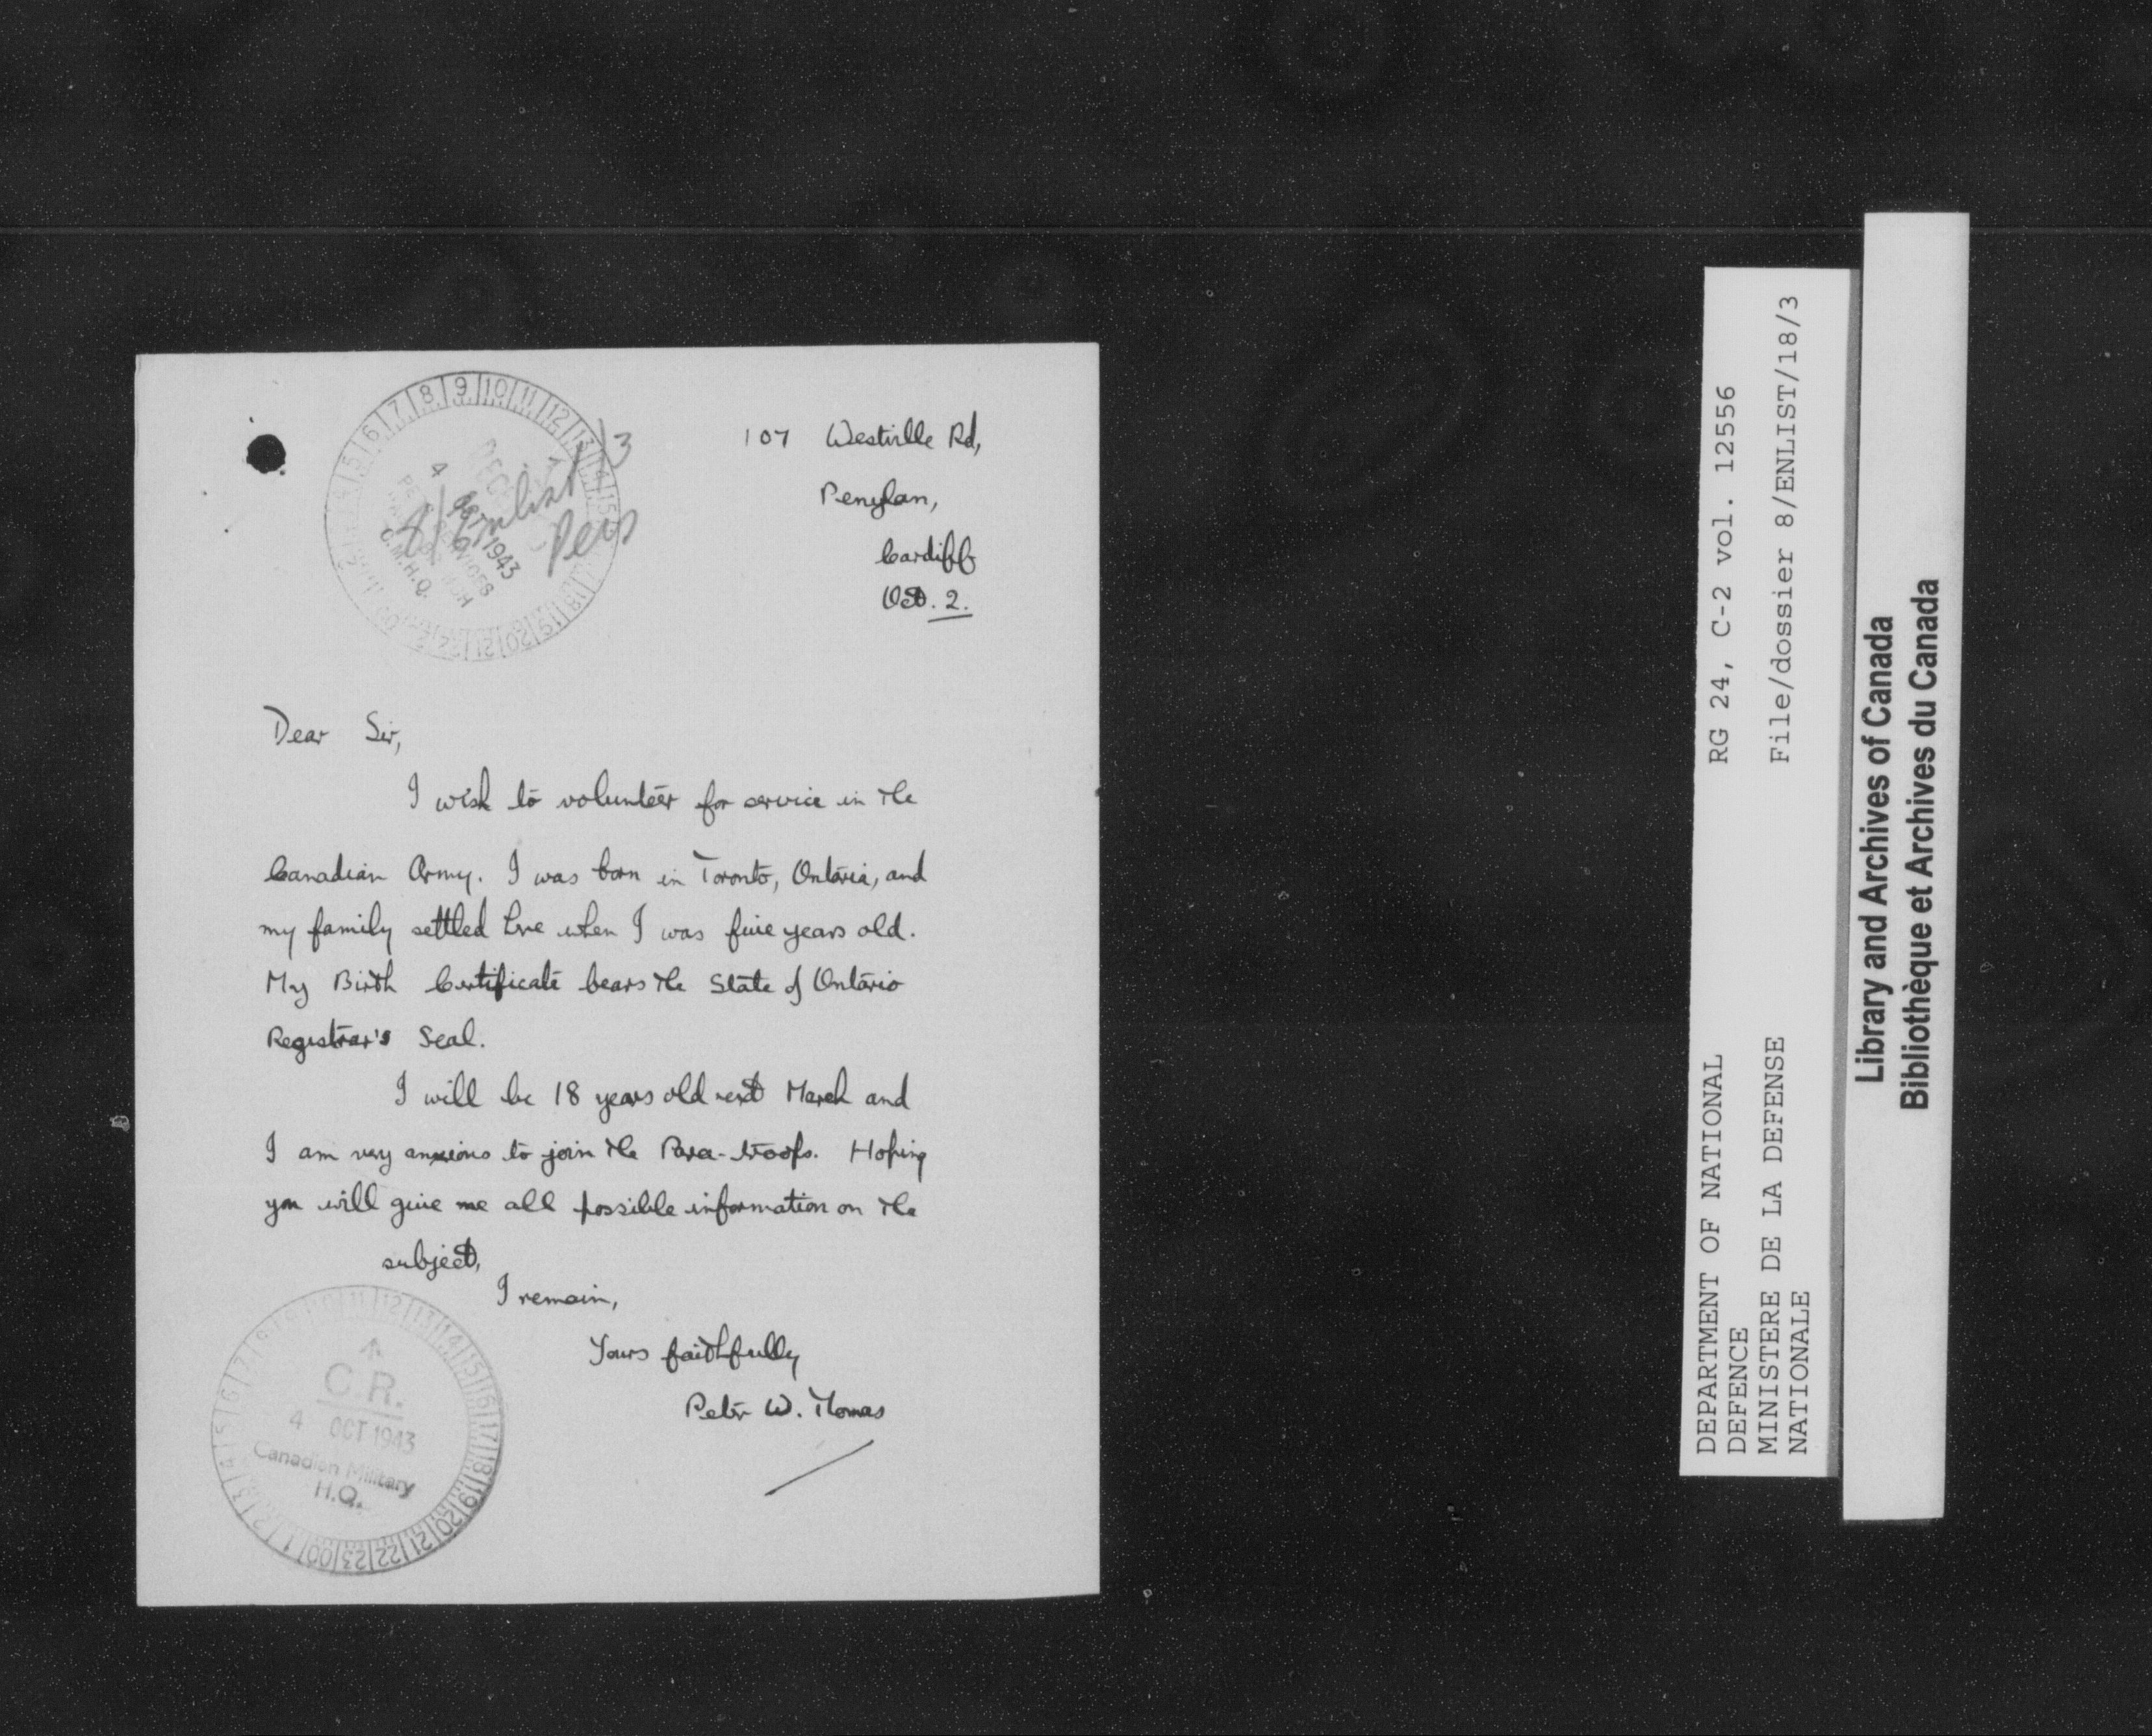 107 Westville Rd,
Penylan,
Cardiff
Oct. 2.
8/Enlist/3
Pers
4 OCT 1943
C.M.H.Q.
Dear Sir,
I wish to volunteer for service in the
Canadian Army. I was born in Toronto, Ontario, and
my family settled here when I was five years old.
My Birth Certificate bears the State of Ontario
Registrar's Seal.
I will be 18 years old next March and
I am very anxious to join the Para-troops. Hoping
you will give me all possible information on the
subject,
I remain,
Yours faithfully
Peter W. Thomas
C.R.
4 OCT 1943
Canadian Military
H.Q.
DEPARTMENT OF NATIONAL
DEFENCE
MINISTERE DE LA DEFENSE
NATIONALE
RG 24, C-2 vol. 12556
File/dossier 8/ENLIST/18/3
Library and Archives of Canada
Bibliothèque et Archives du Canada